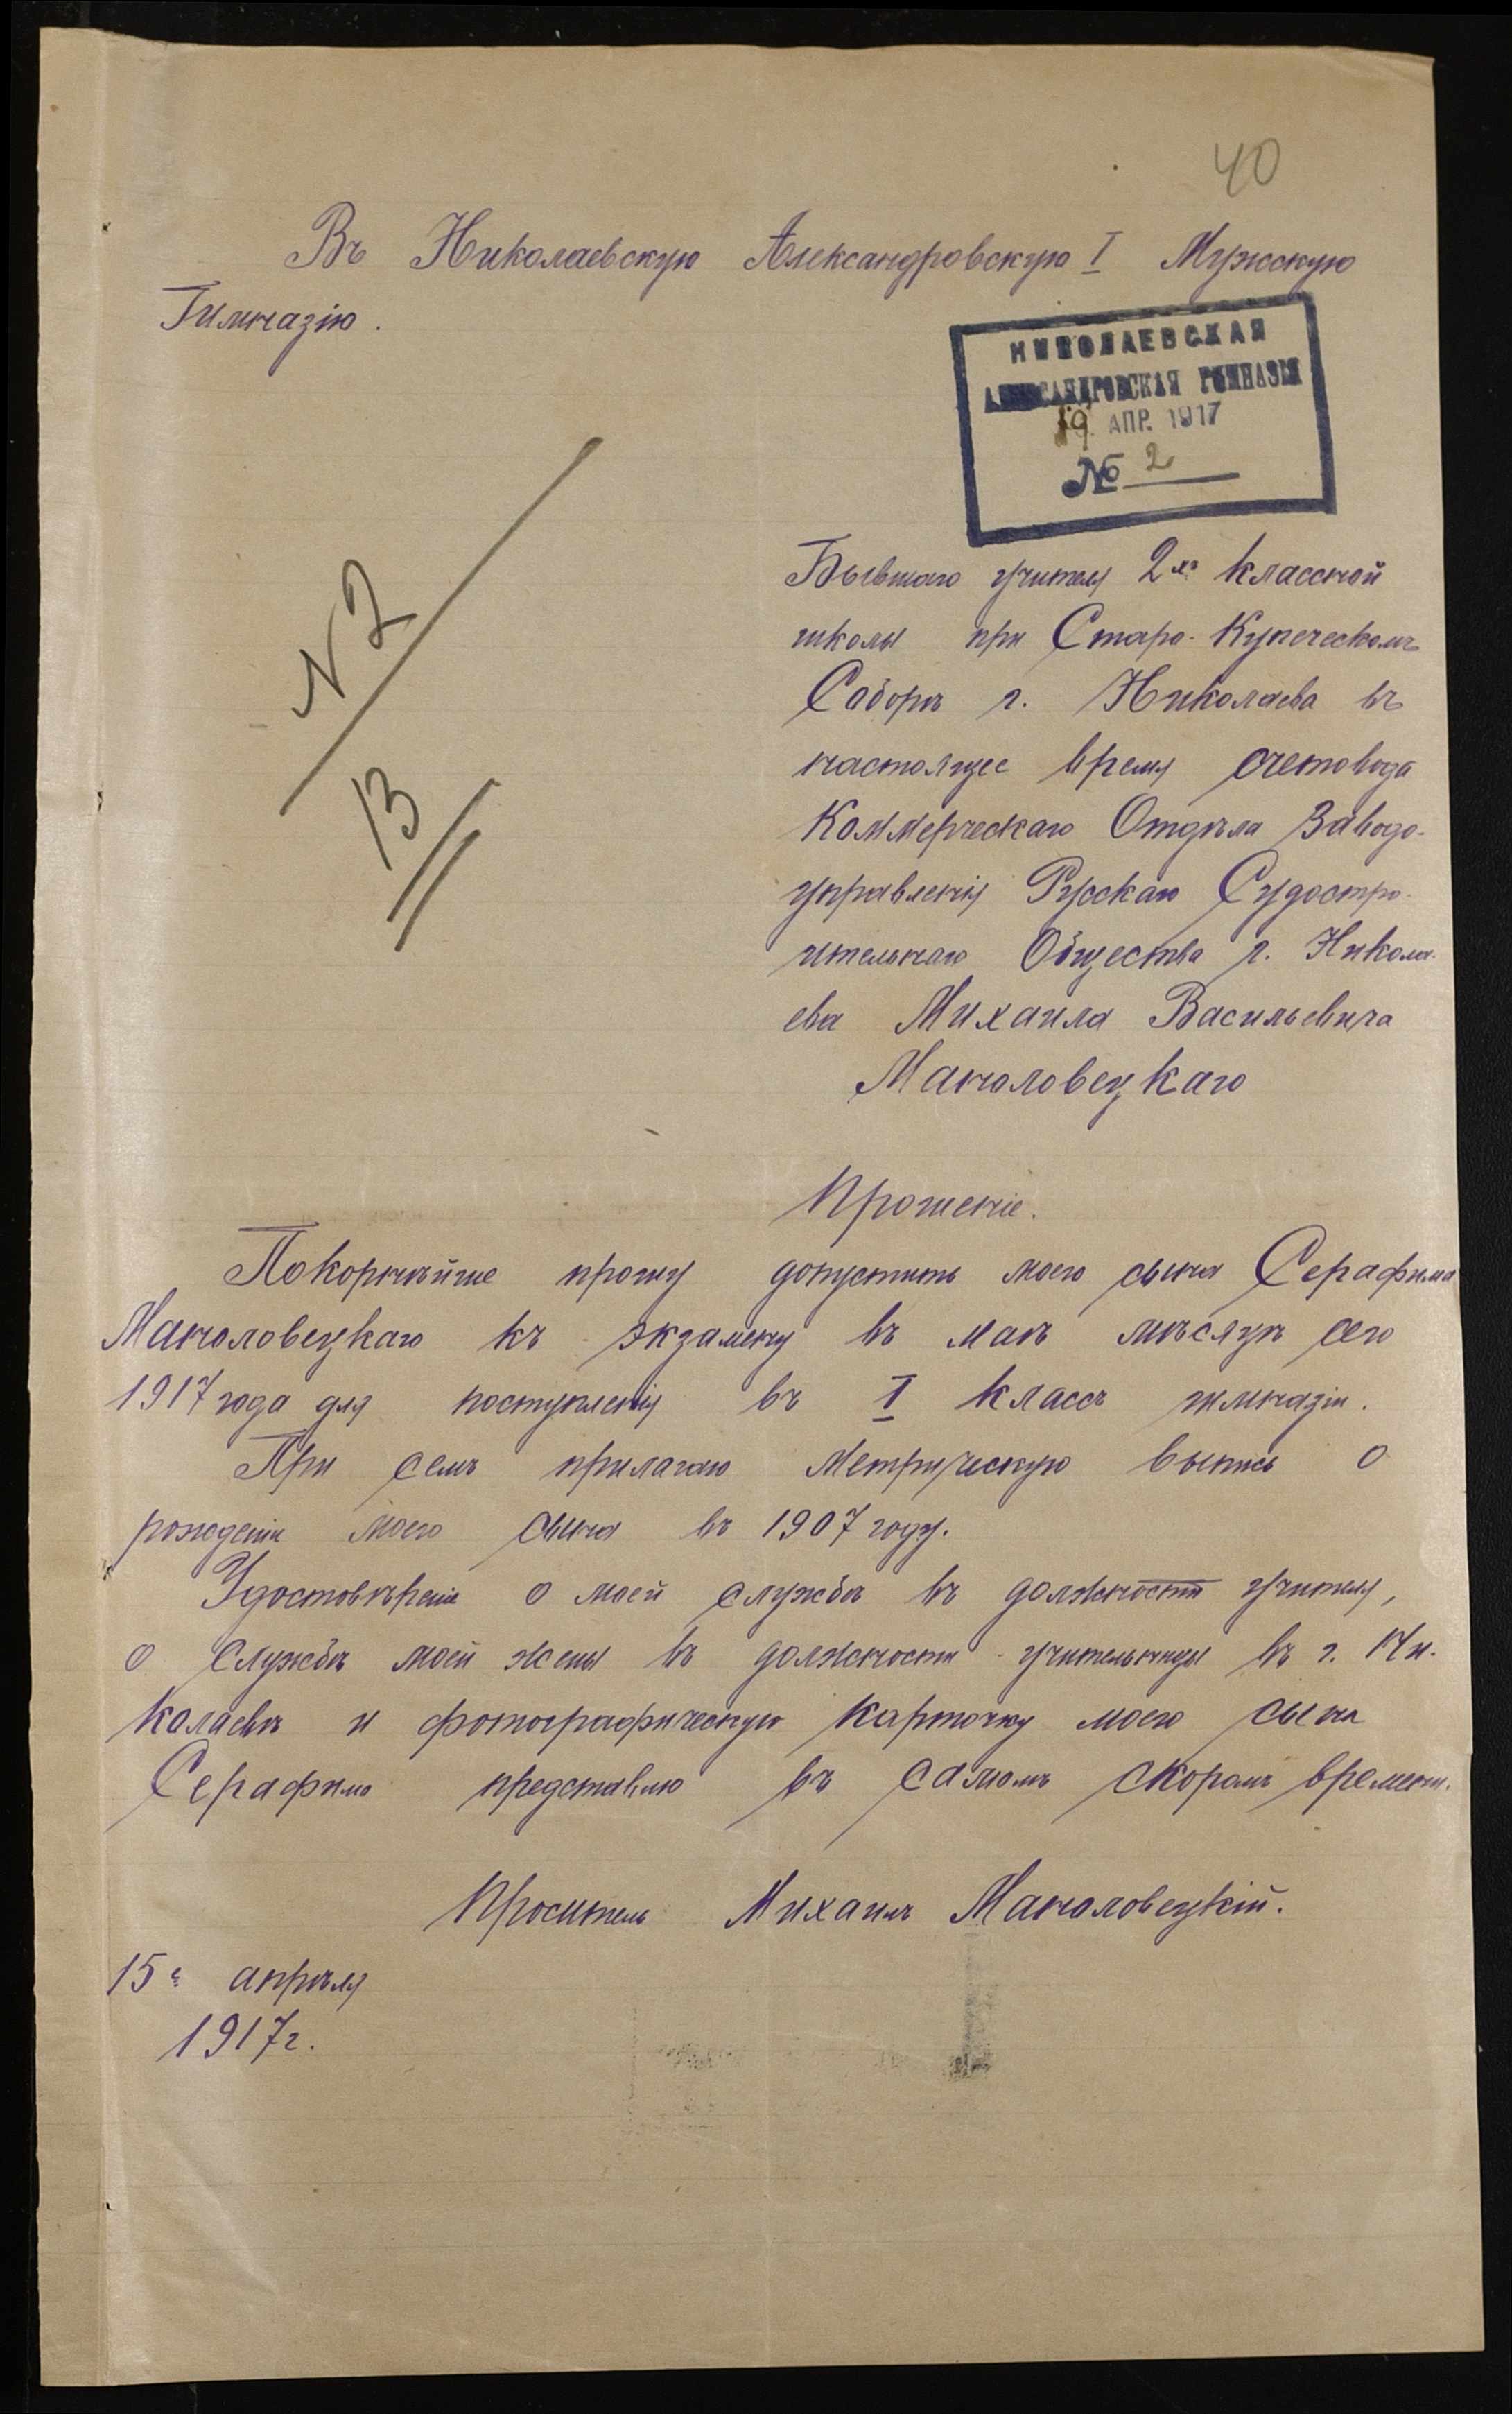 40
Въ Николаевскую Александровскую I Мужскую
Гимназію.
НИКОЛАЕВСКАЯ
АЛЕКСАНДРОВСКАЯ ГИМНАЗІЯ
19. АПР. 1917
№ 2
N 2
13
Бывшаго учителя 2хъ классной
школы при Старо-Купеческомъ
Соборѣ г. Николаева въ
настоящее время счетовода
Коммерческаго Отдѣла Заводо-
управленія Русскаго Судостро-
ительнаго Общества г. Никола-
ева Михаила Васильевича
Маноловецкаго
Прошеніе.
Покорнѣйше прошу допустить моего сына Серафима
Маноловецкаго къ экзамену въ маѣ мѣсяцѣ сего
1917 года для поступленія въ I классъ гимназіи.
При семъ прилагаю метрическую выпись о
рожденіи моего сына въ 1907 году.
Удостовѣреніе о моей службѣ въ должности учителя,
о службѣ моей жены въ должности учительницы въ г. Ни-
колаевѣ и фотографическую карточку моего сына
Серафима представлю въ самомъ скоромъ времени.
Проситель Михаилъ Маноловецкій.
15е апрѣля
1917г.